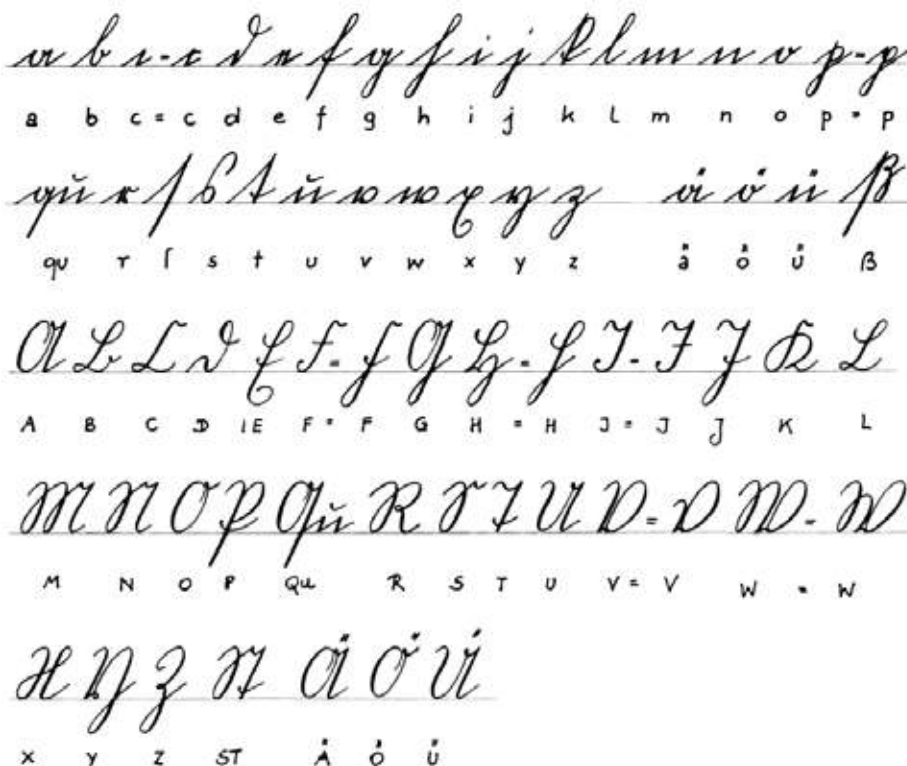 a b c - c d e f g h i j k l m n o p - p
a b c = c d e f g h i j k l m n o p = p
qu r ſ s t u v w x y z ä ö ü ß
qu r ſ s t u v w x y z ä ö ü ß
A B C D E F = F G H = H I - I J K L
A B C D IE F = F G H = H J = J J K L
M N O P Qu R S T U V = V W - W
M N O P Qu R S T U V = V W = W
X Y Z St Ä Ö Ü
X Y Z ST Ä Ö Ü